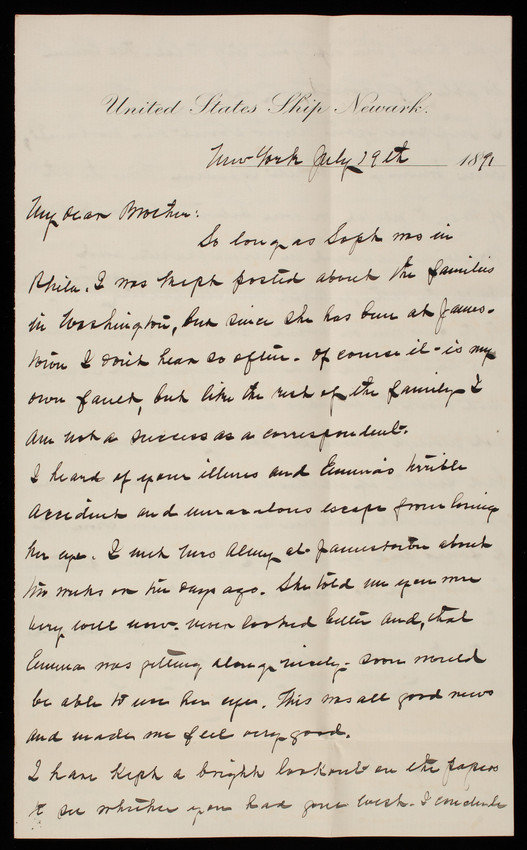 United States Ship Newark.
New York July 19th 1891
My dear Brother:
So long as Soph was in
Phila. I was kept posted about the families
in Washington, but since she has been at James-
town I don't hear so often. Of course it is my
own fault, but like the rest of the family I
am not a success as a correspondent.
I heard of your illness and Emma's terrible
accident and miraculous escape from losing
her eye. I met Mrs Almy at Jamestown about
two weeks or ten days ago. She told me you were
very well now. never looked better and, that
Emma was getting along nicely - soon would
be able to use her eyes. This was all good news
and made me feel very good.
I have kept a bright lookout on the papers
to see whether you had gone west. I conclude